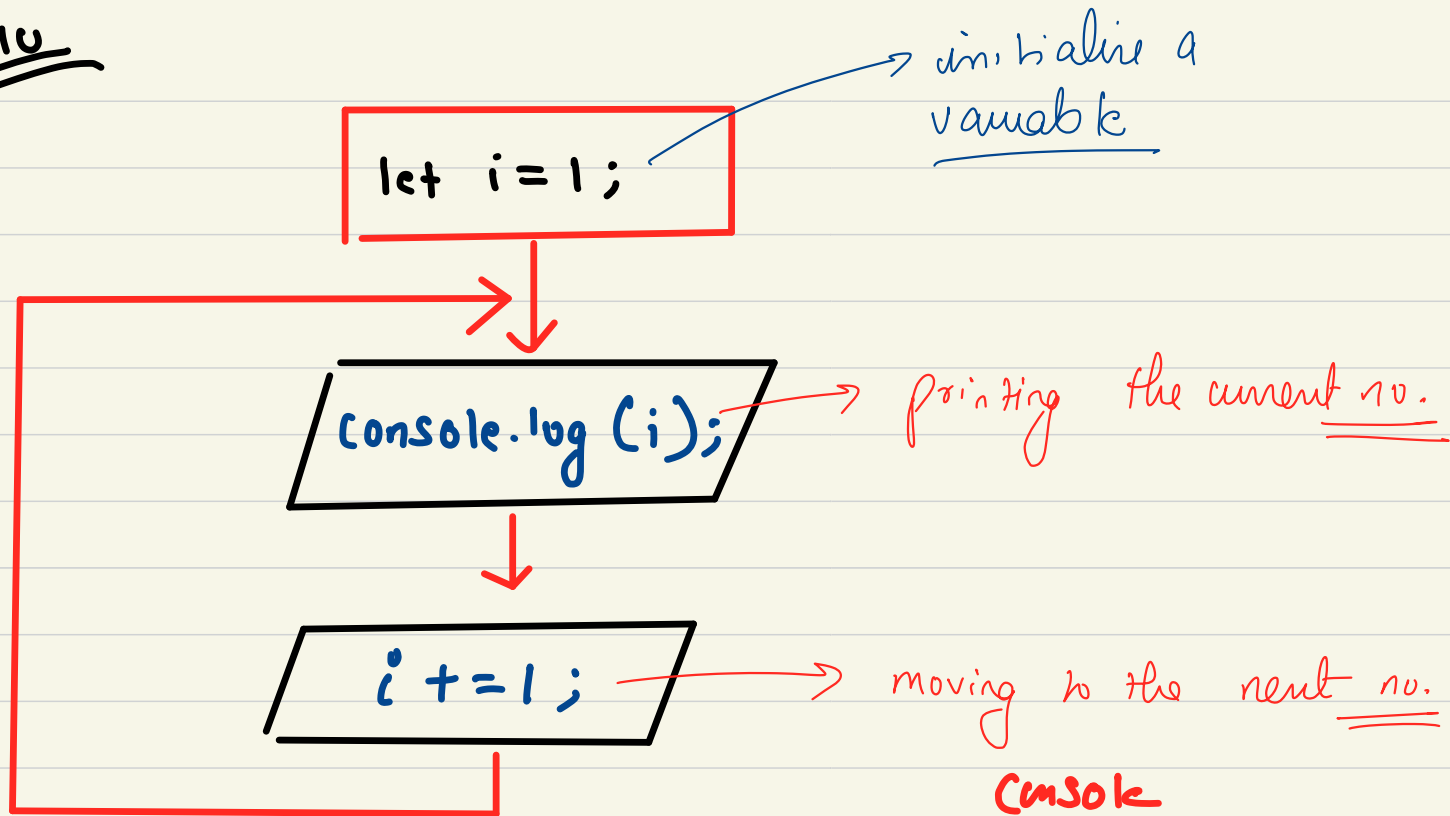 10
initialize a
variable
let i = 1 ;
console.log (i);
printing the current no.
i += 1 ;
moving to the next no.
Console